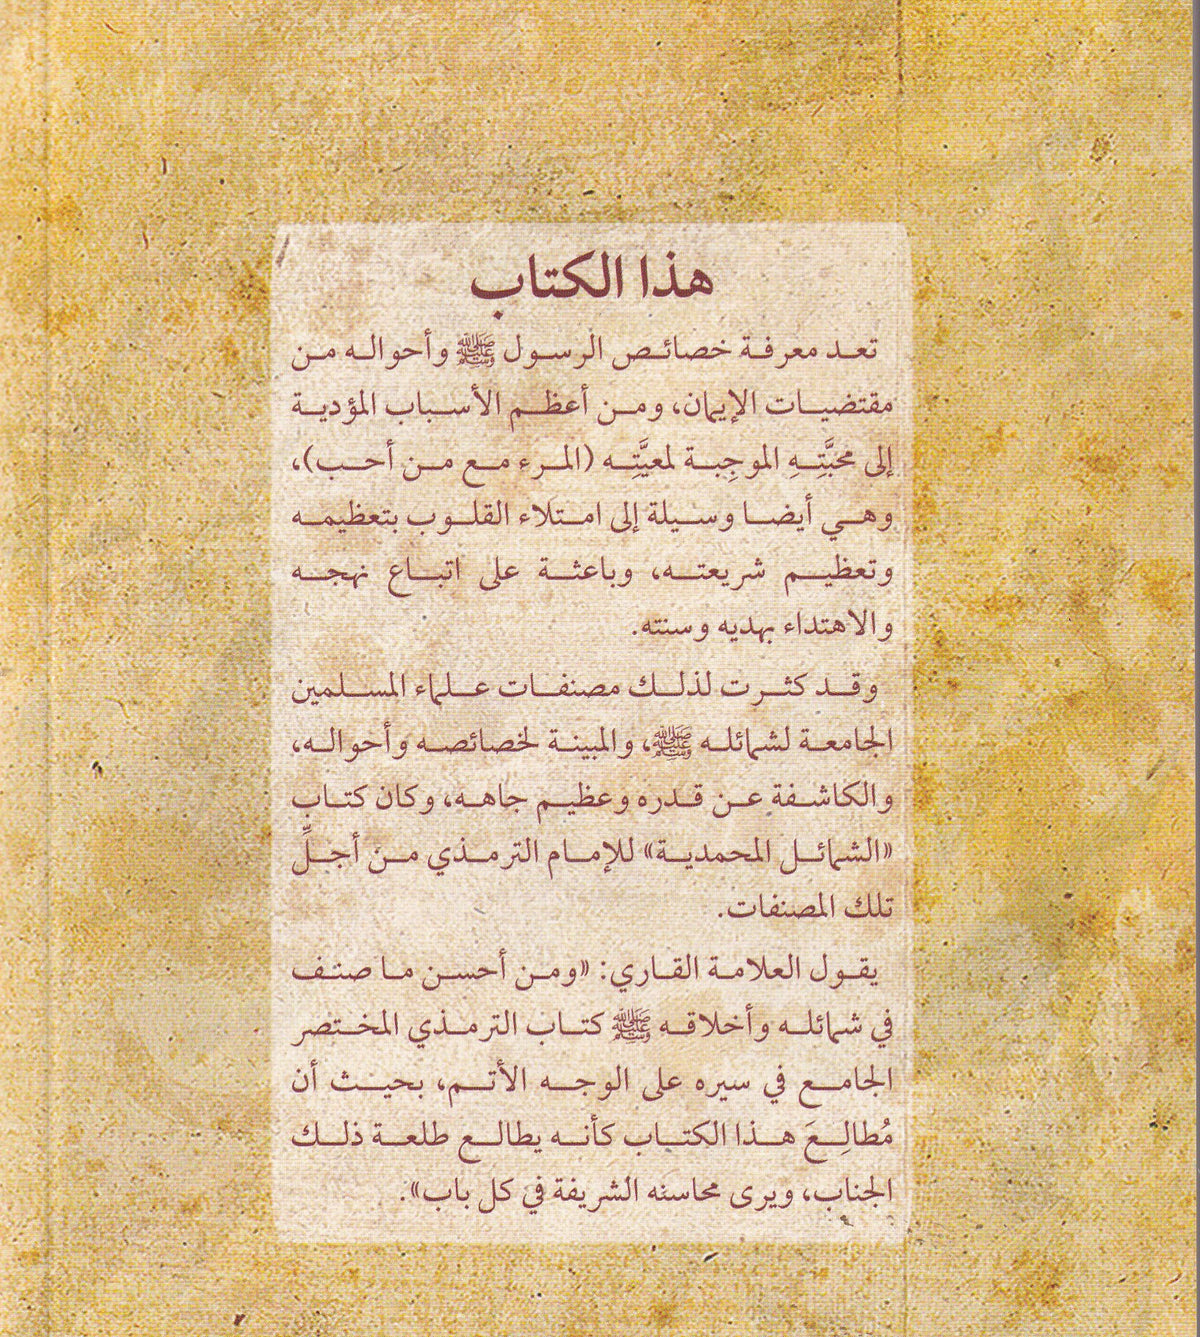 هذا الكتاب
تعد معرفة خصائص الرسول ﷺ وأحواله من
مقتضيات الإيمان، ومن أعظم الأسباب المؤدية
إلى محبَّتِهِ الموجِبة لمعيَّتِه (المرء مع من أحب)،
وهي أيضا وسيلة إلى امتلاء القلوب بتعظيمه
وتعظيم شريعته، وباعثة على اتباع نهجه
والاهتداء بهديه وسنته.
وقد كثرت لذلك مصنفات علماء المسلمين
الجامعة لشمائله ﷺ، والمبينة لخصائصه وأحواله،
والكاشفة عن قدره وعظيم جاهه، وكان كتاب
«الشمائل المحمدية» للإمام الترمذي من أجلِّ
تلك المصنفات.
يقول العلامة القاري: «ومن أحسن ما صنف
في شمائله وأخلاقه ﷺ كتاب الترمذي المختصر
الجامع في سيره على الوجه الأتم، بحيث أن
مُطالِعَ هذا الكتاب كأنه يطالع طلعة ذلك
الجناب، ويرى محاسنه الشريفة في كل باب».